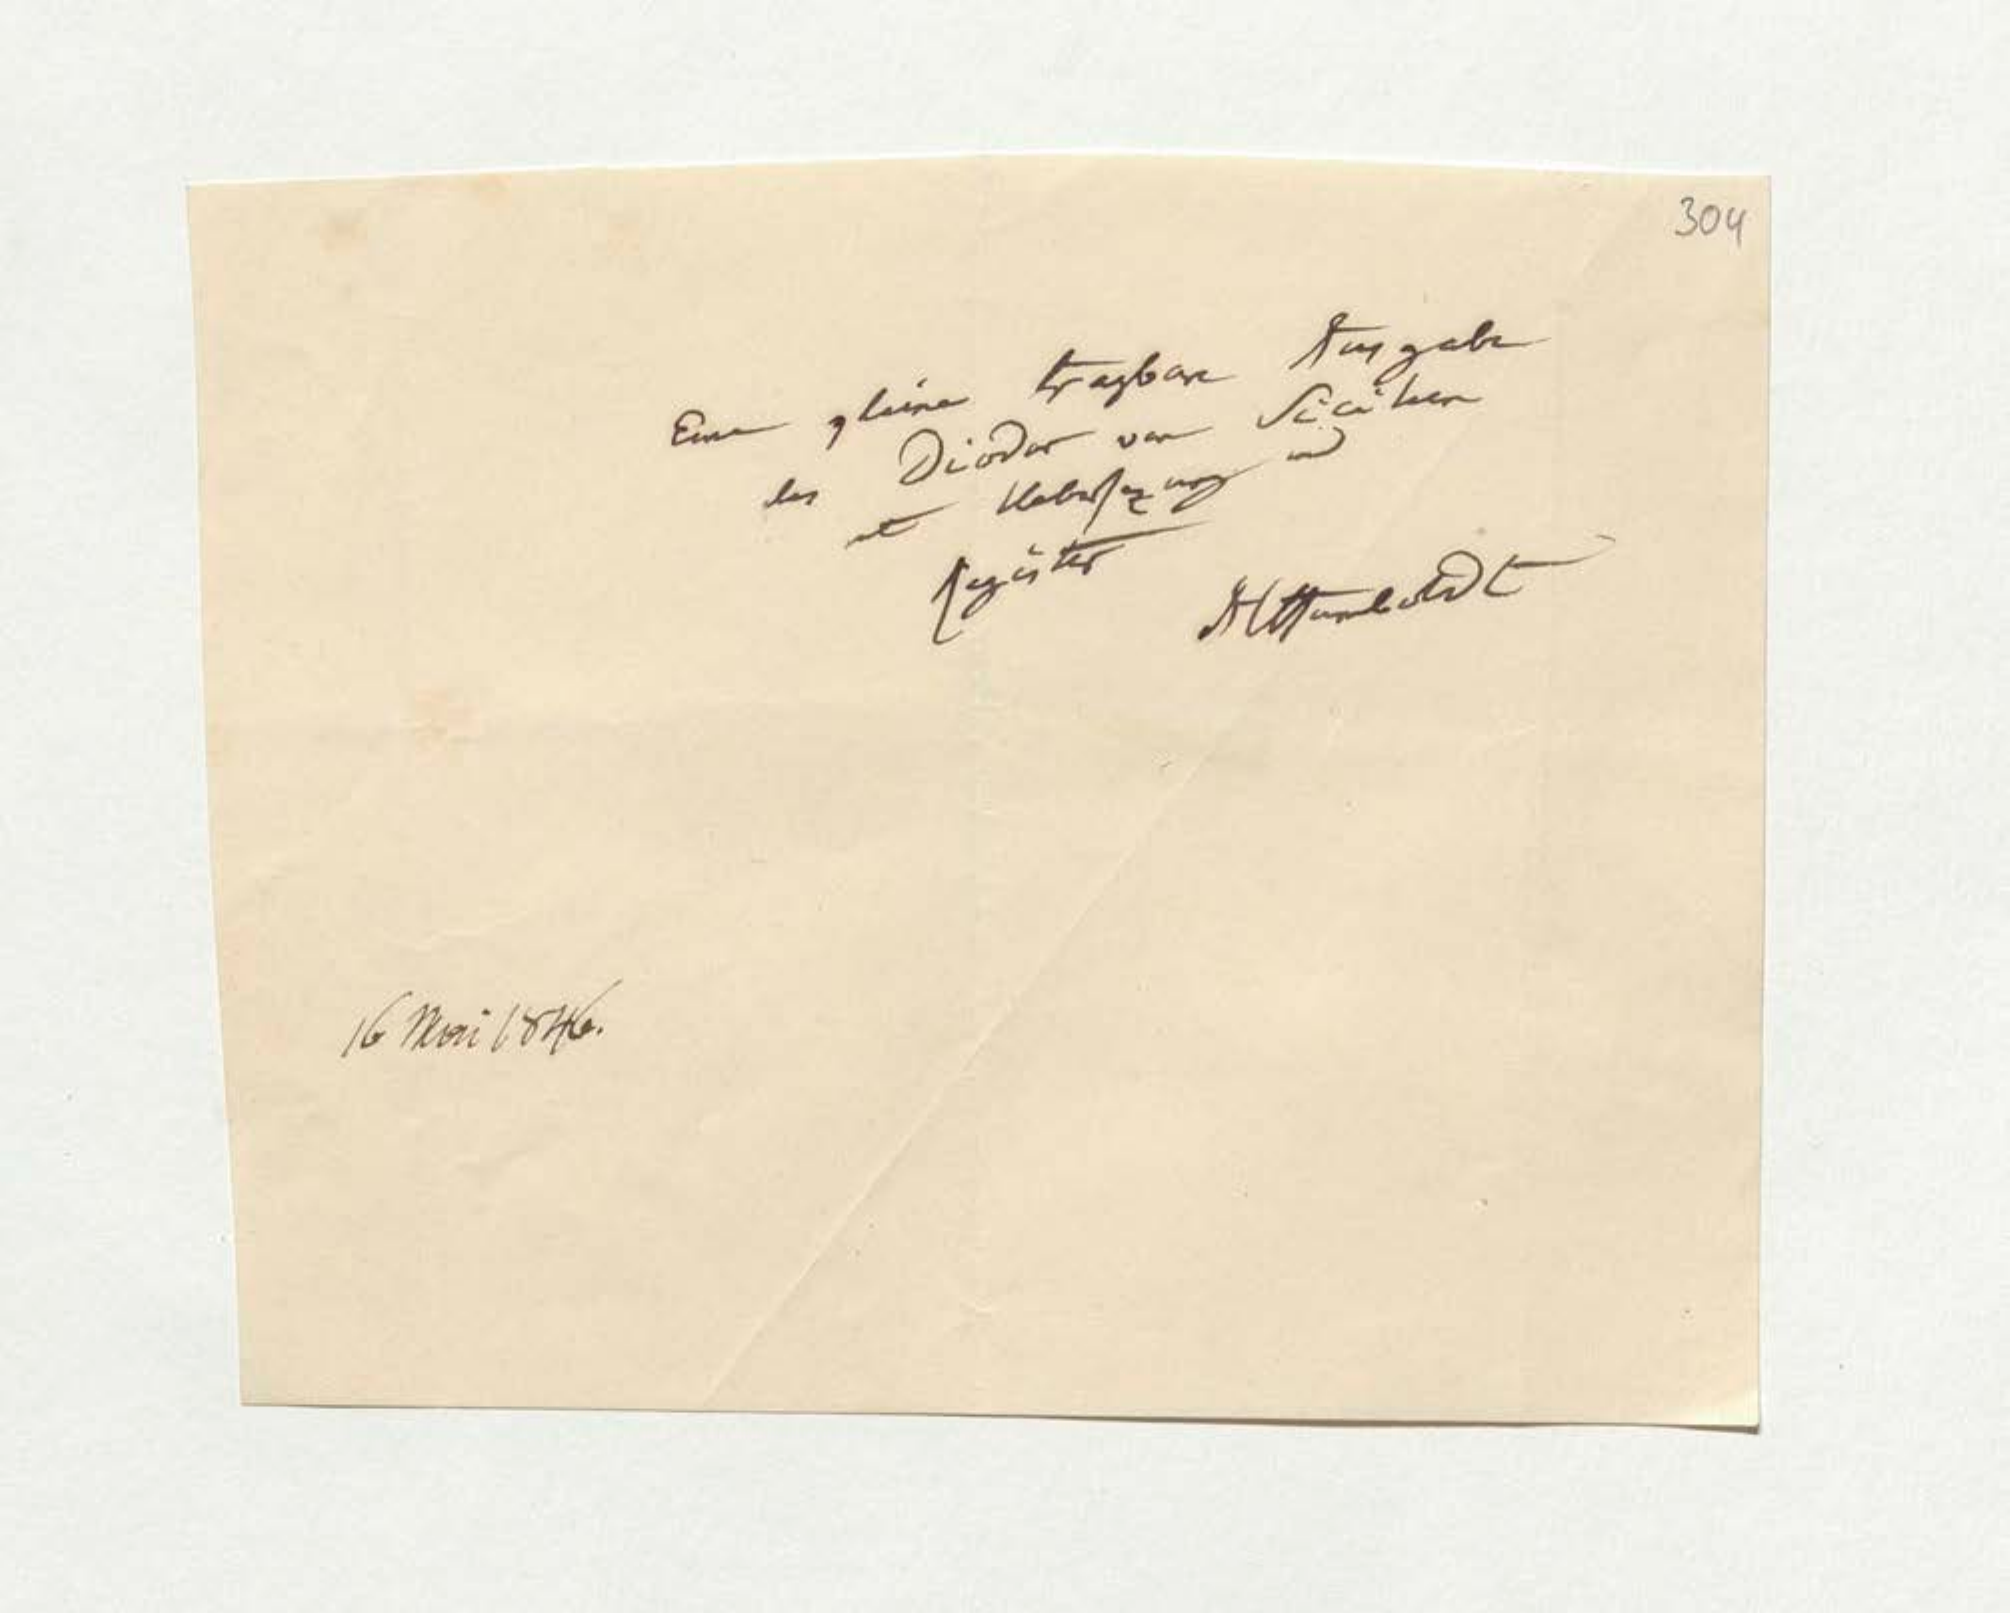 304
Eine kleine tragbare Ausgabe
des Diodor von Sicilien
mit Uebersezung und
Register
AvHumboldt
16 Mai 1846.